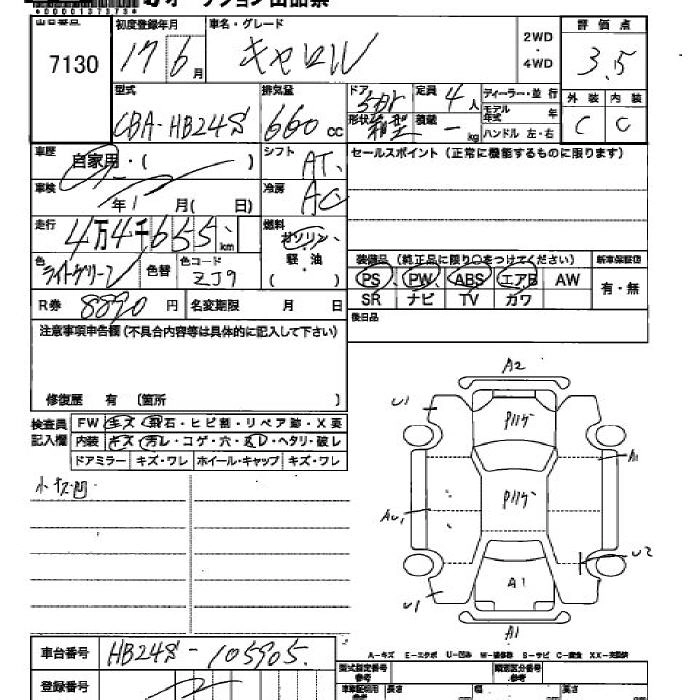 *0000013737375*
出品番号 初度登録年月 車名・グレード 2WD・4WD 評価点
7130 17 6月 キャロル 3.5
型式 排気量 ドア形状 定員 ディーラー・並行 外装 内装
CBA-HB24S 660 cc 5Dr 箱型 4人 積載 kg モデル年式 年 ハンドル 左・右 C C
車歴 自家用・( ) シフト AT セールスポイント(正常に機能するものに限ります)
車検 年 月( 日) 冷房 AC
走行 4万4千655 km 燃料 ガソリン 軽・油 ( )
色 ライトグリーン 色替 色コード ZJ9
装備品(純正品に限り○をつけてください) 新車保証書
PS PW ABS エアB AW 有・無
SR ナビ TV カワ
R券 8890円 名変期限 月 日 後日品
注意事項申告欄(不具合内容等は具体的に記入して下さい)
修復歴 有 〔箇所 〕
検査員記入欄 FW キズ・飛石・ヒビ割・リペア跡・X要
内装 キズ・汚レ・コゲ・穴・ハガレ・ヘタリ・破レ
ドアミラー キズ・ワレ ホイール・キャップ キズ・ワレ
小キズ凹
A2
U1
A1
U2
U1
A1
A1
A-キズ E-エクボ U-凹み W-補修跡 S-サビ C-腐食 XX-交換済
車台番号 HB24S-105905
型式指定番号 類別区分番号
登録番号 長さ cm 幅 cm 高さ